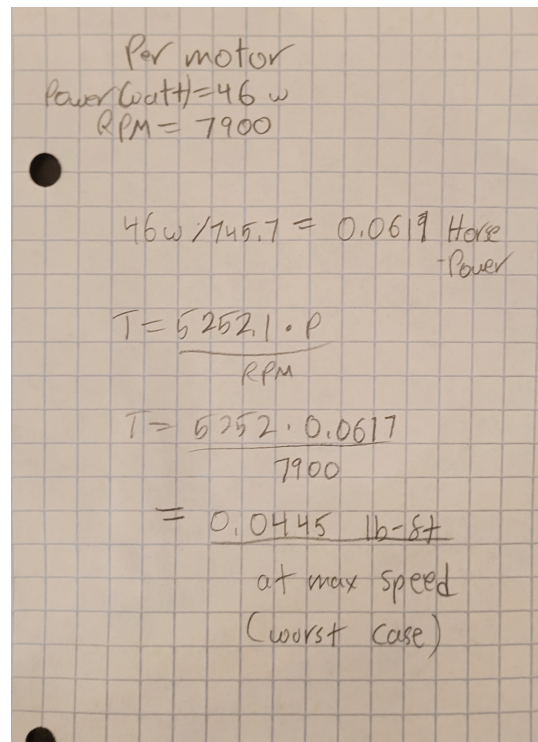 Per motor
Power(watt)=46 w
RPM= 7900
46w/745.7 = 0.0617 Horse
-Power
T= 5252.1 · P
RPM
T= 5252 · 0.0617
7900
= 0.0445 lb-ft
at max speed
(worst case)